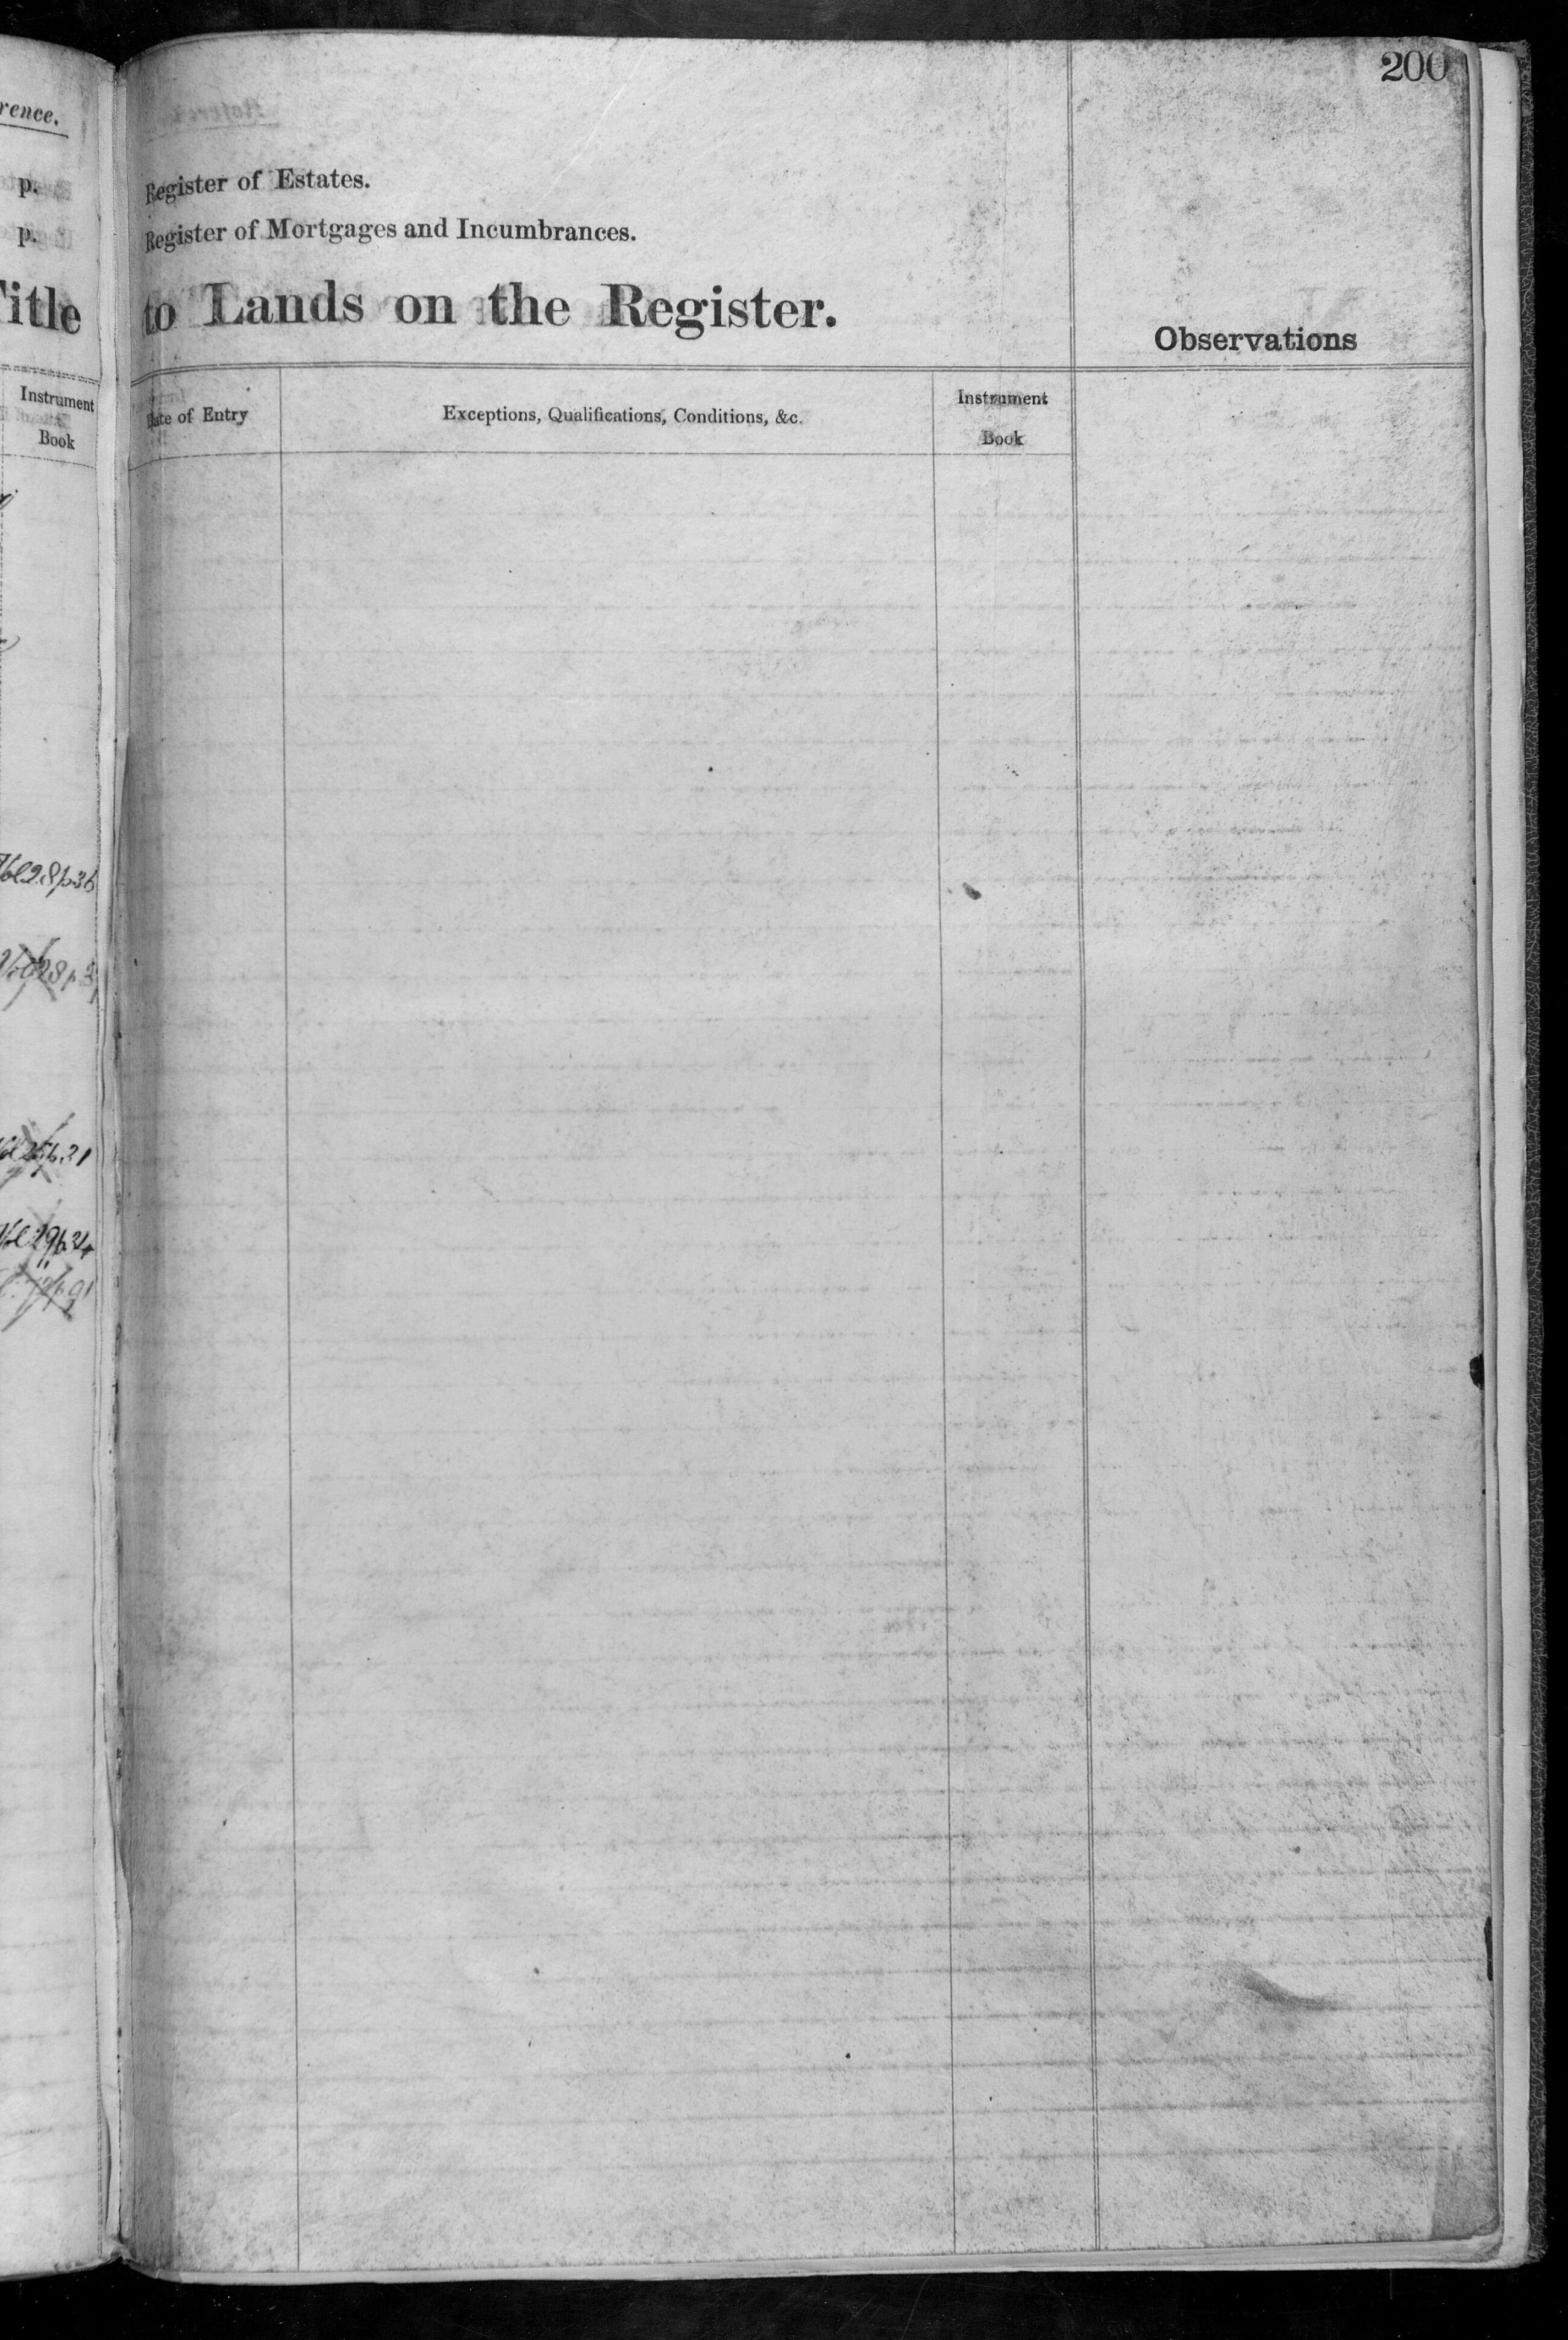 rence.
p.
p.
Title
Instrument
Book
Vol 28 p 36
Vol 29 p 24
200
Register of Estates.
Register of Mortgages and Incumbrances.
to Lands on the Register.
Observations
Date of Entry
Exceptions, Qualifications, Conditions, &c.
Instrument
Book